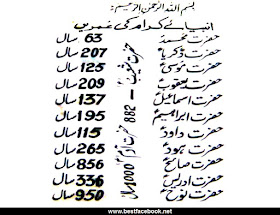 بسم اللہ الرحمٰن الرحیم:
انبیائے کرام کی عمریں
حضرت محمدؐ 63 سال
حضرت زکریاؑ 207 سال
حضرت موسیٰؑ 125 سال
حضرت یعقوبؑ 209 سال
حضرت اسماعیلؑ 137 سال
حضرت ابراہیمؑ 195 سال
حضرت داودؑ 115 سال
حضرت ہودؑ 265 سال
حضرت صالحؑ 856 سال
حضرت ادریسؑ 336 سال
حضرت نوحؑ 950 سال
حضرت شیثؑ - 882 - حضرت آدمؑ 1000 سال
www.bestfacebook.net